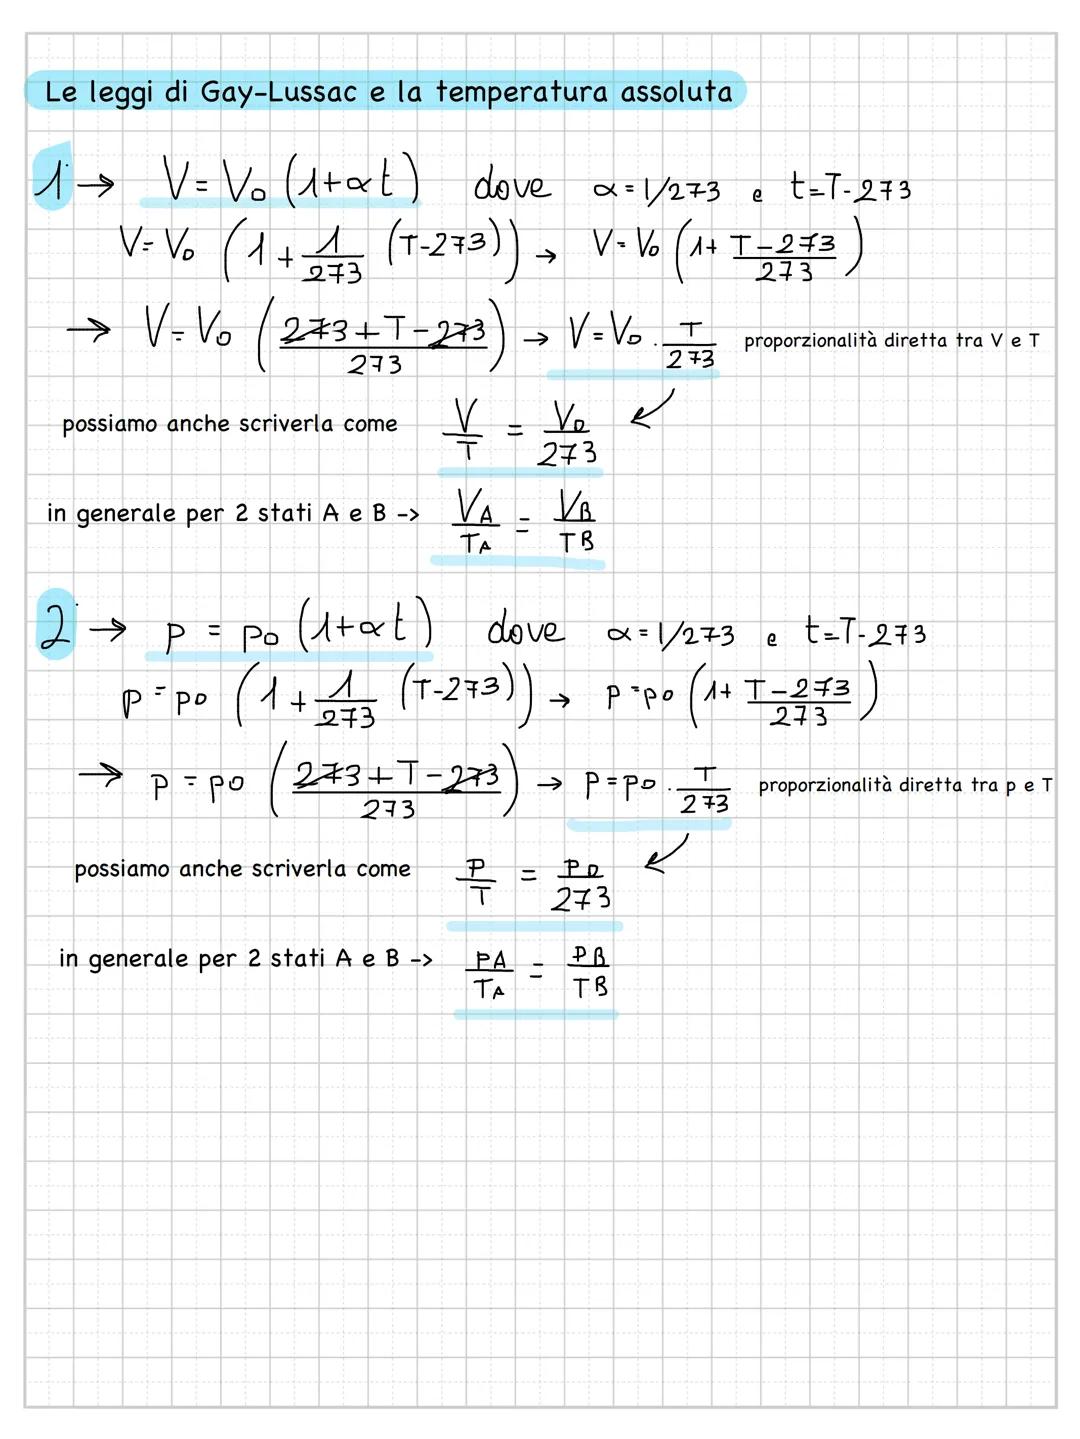 Le leggi di Gay-Lussac e la temperatura assoluta
1 → V = V₀ (1+αt) dove α = 1/273 e t=T-273
V = V₀ (1 + 1/273 (T-273)) → V = V₀ (1+ T-273/273)
→ V = V₀ (273+T-273/273) → V = V₀ · T/273 proporzionalità diretta tra V e T
possiamo anche scriverla come V/T = V₀/273
in generale per 2 stati A e B -> VA/TA = VB/TB
2 → p = p₀ (1+αt) dove α = 1/273 e t=T-273
p = p₀ (1 + 1/273 (T-273)) → p = p₀ (1+ T-273/273)
→ p = p₀ (273+T-273/273) → p = p₀ · T/273 proporzionalità diretta tra p e T
possiamo anche scriverla come p/T = p₀/273
in generale per 2 stati A e B -> pA/TA = pB/TB